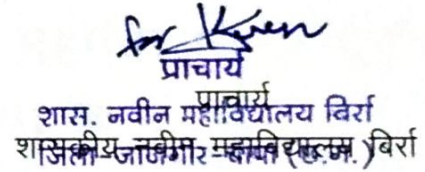 for
प्राचार्य
प्राचार्य
शास. नवीन महाविद्यालय बिर्रा
शासकीय नवीन महाविद्यालय बिर्रा
जिला-जांजगीर-चांपा (छ.ग.)